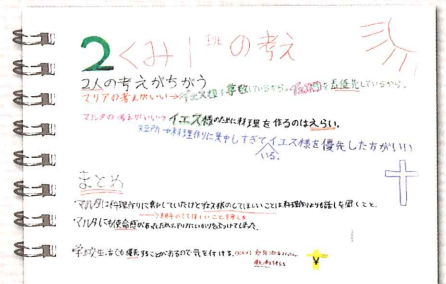 2くみ1班の考え
2人の考えがちがう
マリアの考えがいい→イエス様を尊敬しているから。を優先しているから。
マルタの考えがいい→イエス様のために料理を作るのはえらい。
短所→料理作りに集中しすぎてイエス様を優先した方がいい
いる。
まとめ
マルタは料理作りに集中していたけどイエス様のしてほしいことは料理作りより話しを聞くこと。
→相手のしてほしいことを考える
マルタにも使命感があったためマリアにいかりをぶつけてしまった。
学校生活でも優先することがあるので気を付ける。